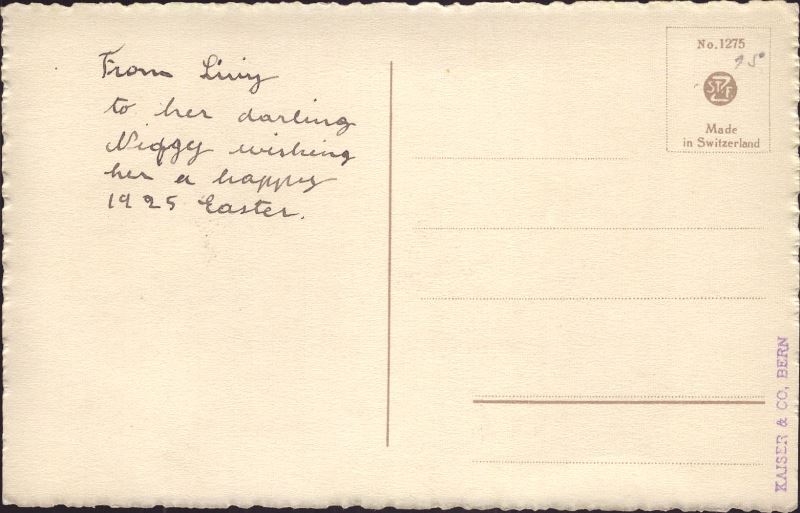 From Livy
to her darling
Nidgy wishing
her a happy
1925 Easter.
No. 1275
STZF
Made
in Switzerland
KAISER & CO, BERN